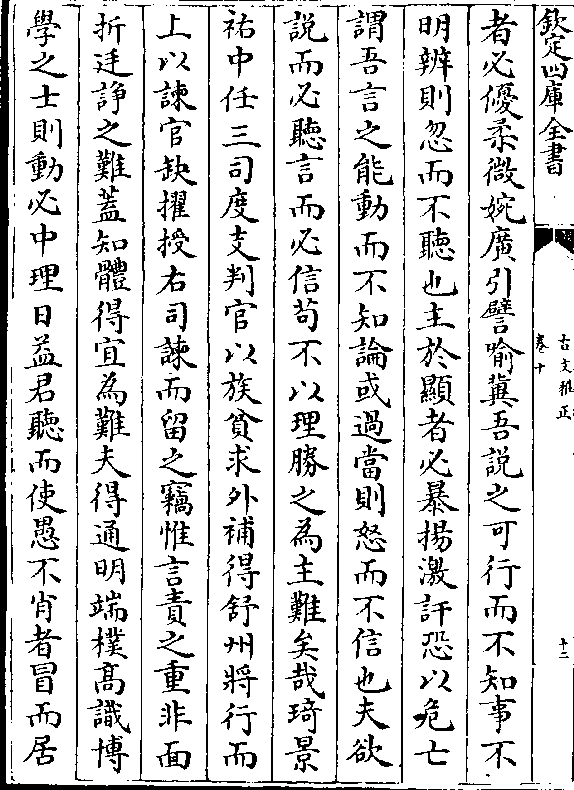 欽定四庫全書
古文雅正
卷十
十三
者必優柔微婉廣引譬喻冀吾説之可行而不知事不
明辨則忽而不聽也主於顯者必暴揚激訐恐以危亡
謂吾言之能動而不知論或過當則怒而不信也夫欲
説而必聽言而必信苟不以理勝之為主難矣哉琦景
祐中任三司度支判官以族貧求外補得舒州將行而
上以諫官缺擢授右司諫而留之竊惟言責之重非面
折廷諍之難蓋知體得宜為難夫得通明端樸高識博
學之士則動必中理日益君聽而使愚不肖者冒而居